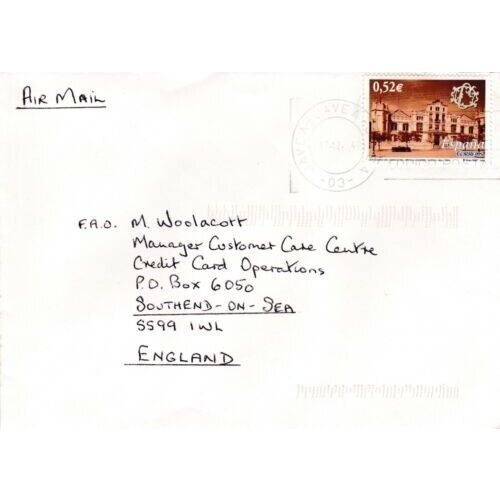 AIR MAIL
0,52€
España
CORREOS
-03-
F.A.O. M. Woolacott
Manager Customer Care Centre
Credit Card Operations
P.O. Box 6050
SOUTHEND-ON-SEA
SS99 1WL
ENGLAND